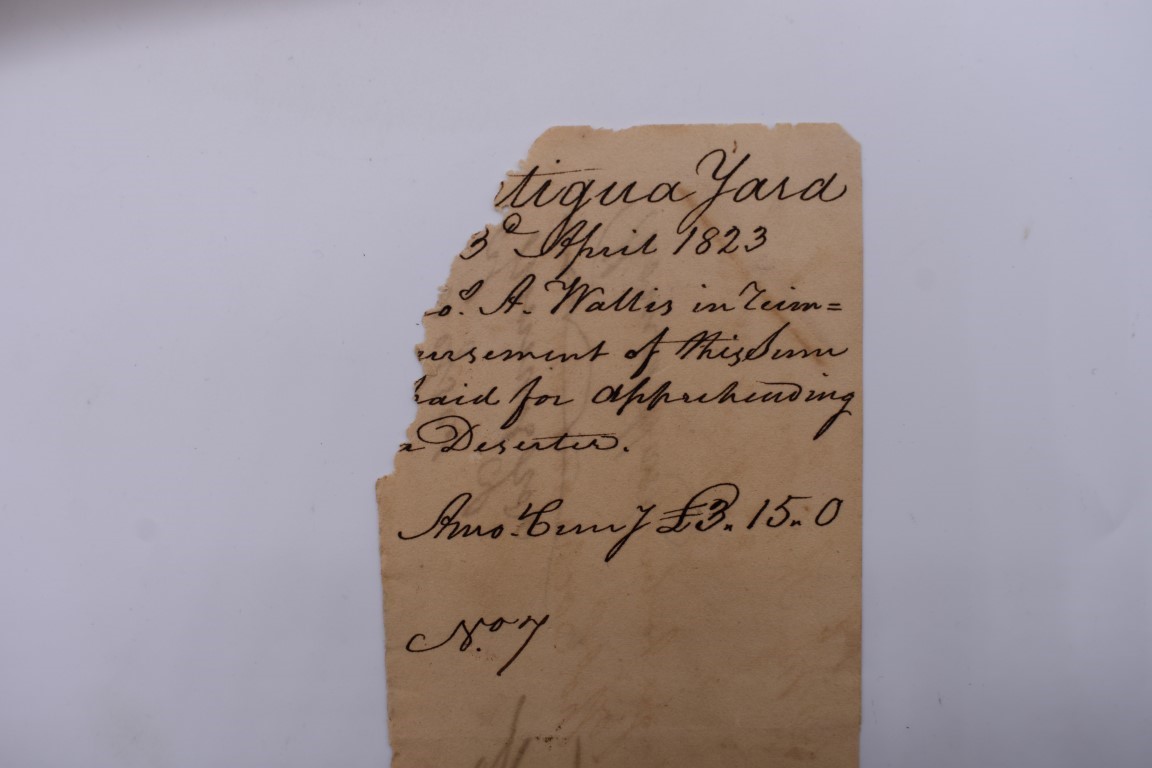 tigua Yard
3d April 1823
o. A. Wallis in reim=
ursement of this Sum
paid for apprehending
a Deserter.
Amo. Curr y £3. 15. 0
No. 7